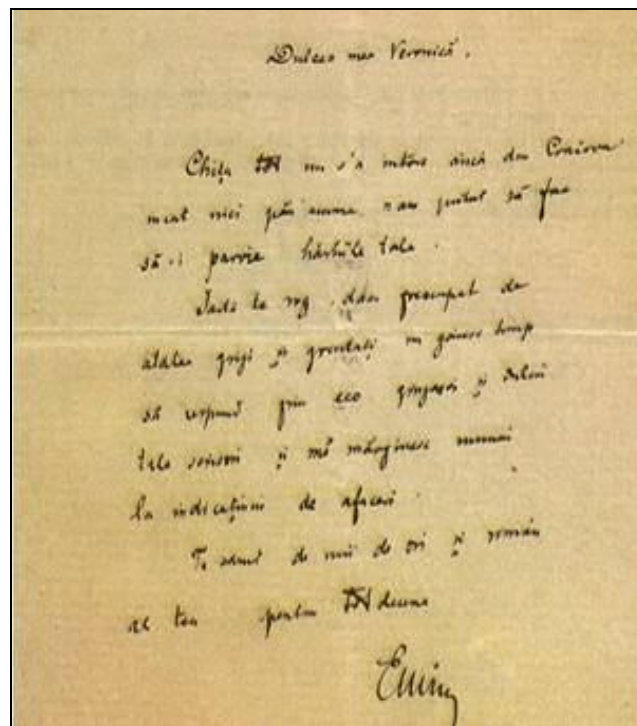 Dulcea mea Veronică,
Chița nu s'a întors încă din Craiova
încât nici pân acuma n'am putut să fac
să-i parvie hârtiile tale.
Iartă te rog, dacă preocupat de
atâtea griji și greutăți nu găsesc timp
să respund prin eco gingașei și dulcei
tale scrisori și mă mărginesc numai
la indicațiuni de afaceri.
Te sărut de mii de ori și rămân
al tău pentru
Emin